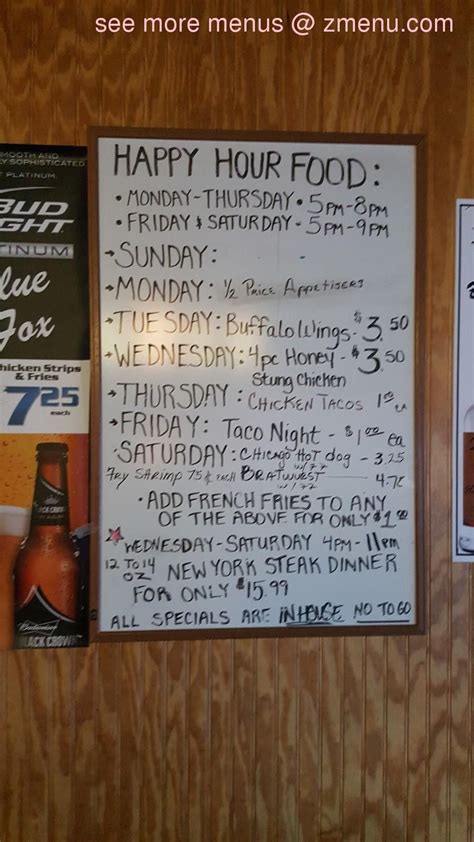 see more menus @ zmenu.com
SMOOTH AND
SOPHISTICATED
PLATINUM.
BUD
GHT
TINUM
lue
Fox
hicken Strips
& Fries
7 25
each
BLACK CROWN
Budweiser
BLACK CROWN
HAPPY HOUR FOOD:
• MONDAY-THURSDAY • 5PM-8PM
• FRIDAY & SATURDAY - 5PM-9PM
→SUNDAY:
→MONDAY: 1/2 PRICE APPETISERS
→TUESDAY: Buffalo Wings - $3.50
→WEDNESDAY: 4pc Honey - $3.50
Stung Chicken
→THURSDAY: CHICKEN TACOS 1 ea
→FRIDAY: Taco Night - $1.00 ea
SATURDAY: CHICAGO HOT dog - 3.25
Fry Shrimp 75¢ each BRATWURST 4.75
• ADD FRENCH FRIES TO ANY
OF THE ABOVE FOR ONLY $1.00
WEDNESDAY-SATURDAY 4PM-11PM
12 TO 14 OZ NEW YORK STEAK DINNER
FOR ONLY $15.99
ALL SPECIALS ARE INHOUSE NO TO GO